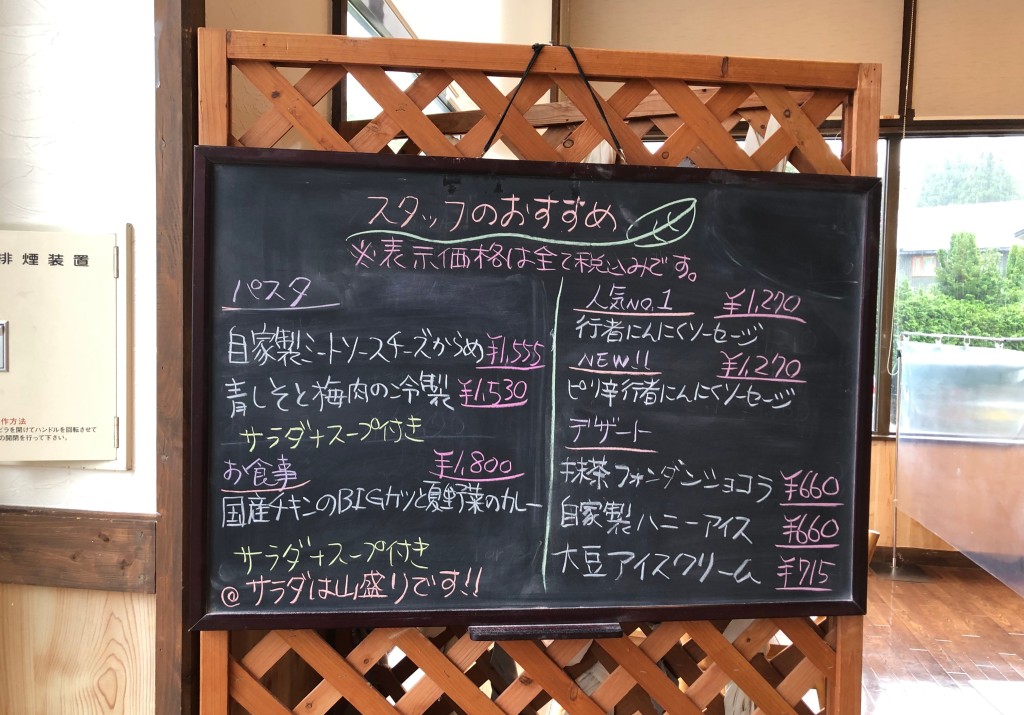 スタッフのおすすめ
※表示価格は全て税込みです。
パスタ
自家製ミートソースチーズからめ ¥1,555
青しそと梅肉の冷製 ¥1,530
サラダ+スープ付き
お食事 ¥1,800
国産チキンのBIGカツと夏野菜のカレー
サラダ+スープ付き
@サラダは山盛りです!!
人気NO.1 ¥1,270
行者にんにくソーセージ
NEW!! ¥1,270
ピリ辛行者にんにくソーセージ
デザート
抹茶フォンダンショコラ ¥660
自家製ハニーアイス ¥660
大豆アイスクリーム ¥715
排煙装置
作方法
ビラを開けてハンドルを回転させて
の開閉を行って下さい。